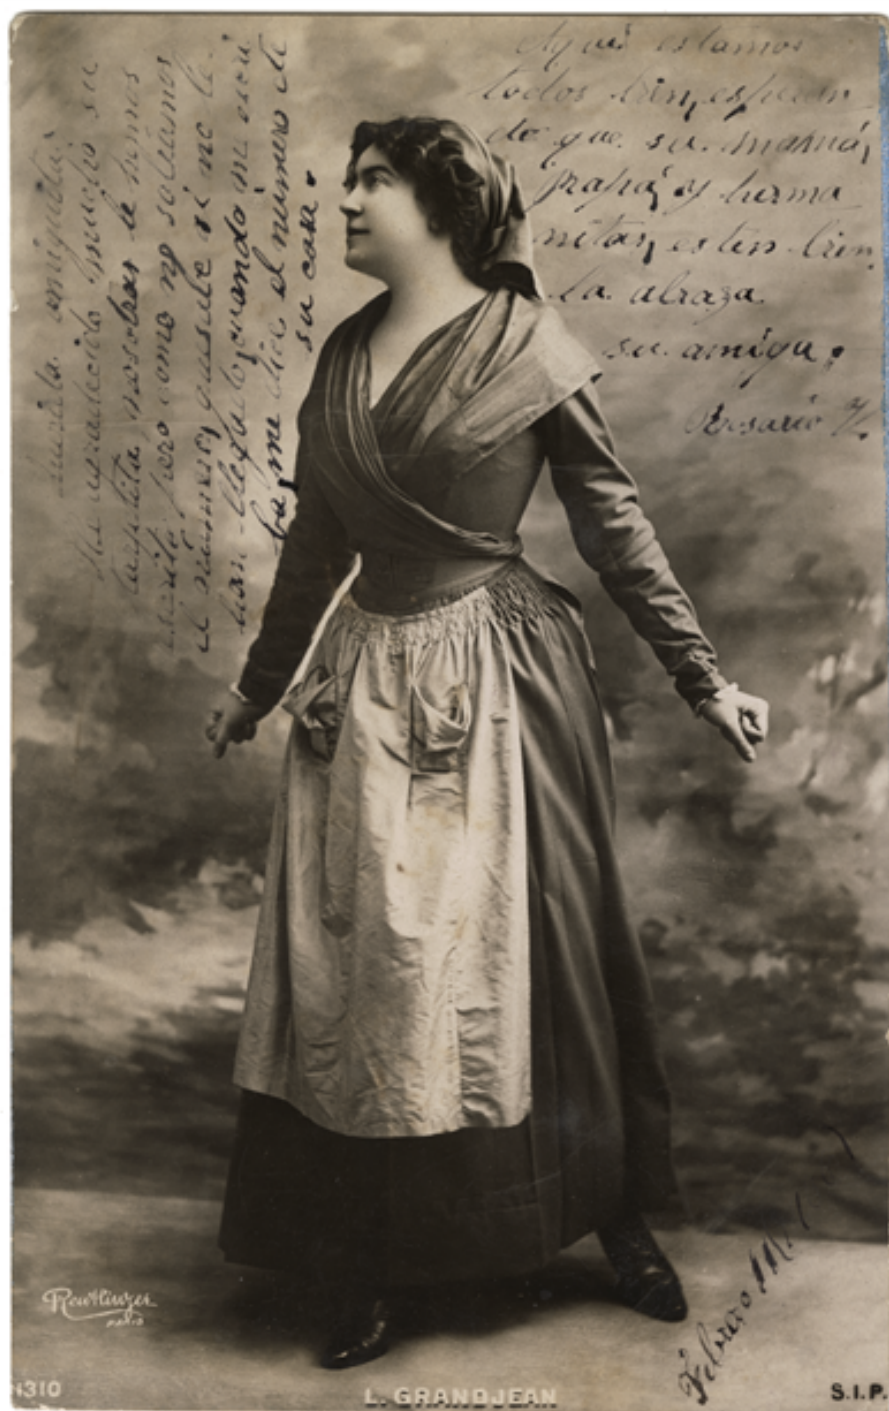 amiguita:
agradecido mucho su
tarjetita, nosotras le hemos
escrito, pero como no sabíamos
el número, quisás si no le
han llegado, cuando me escri
ba, me dice el número de
su casa.
Aquí estamos
todos bien, esperan
do que su mamá,
papá, y herma
nitas, esten bien,
la abraza
su amiga,
Rosario
Febrero
Reutlinger
PARIS
1310
L. GRANDJEAN
S.I.P.